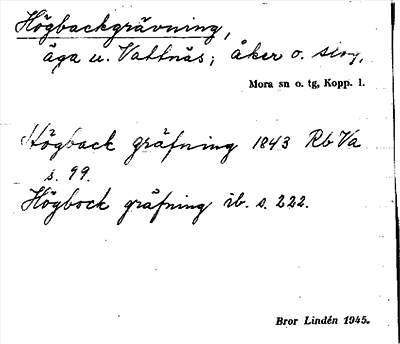 Högbackgrävning,
äga u. Vattnäs; åker o. skog,
Mora sn o. tg, Kopp. l.
Högback gräfning 1843 Rb Va
s. 99.
Högbock gräfning ib. s. 222.
Bror Lindén 1945.